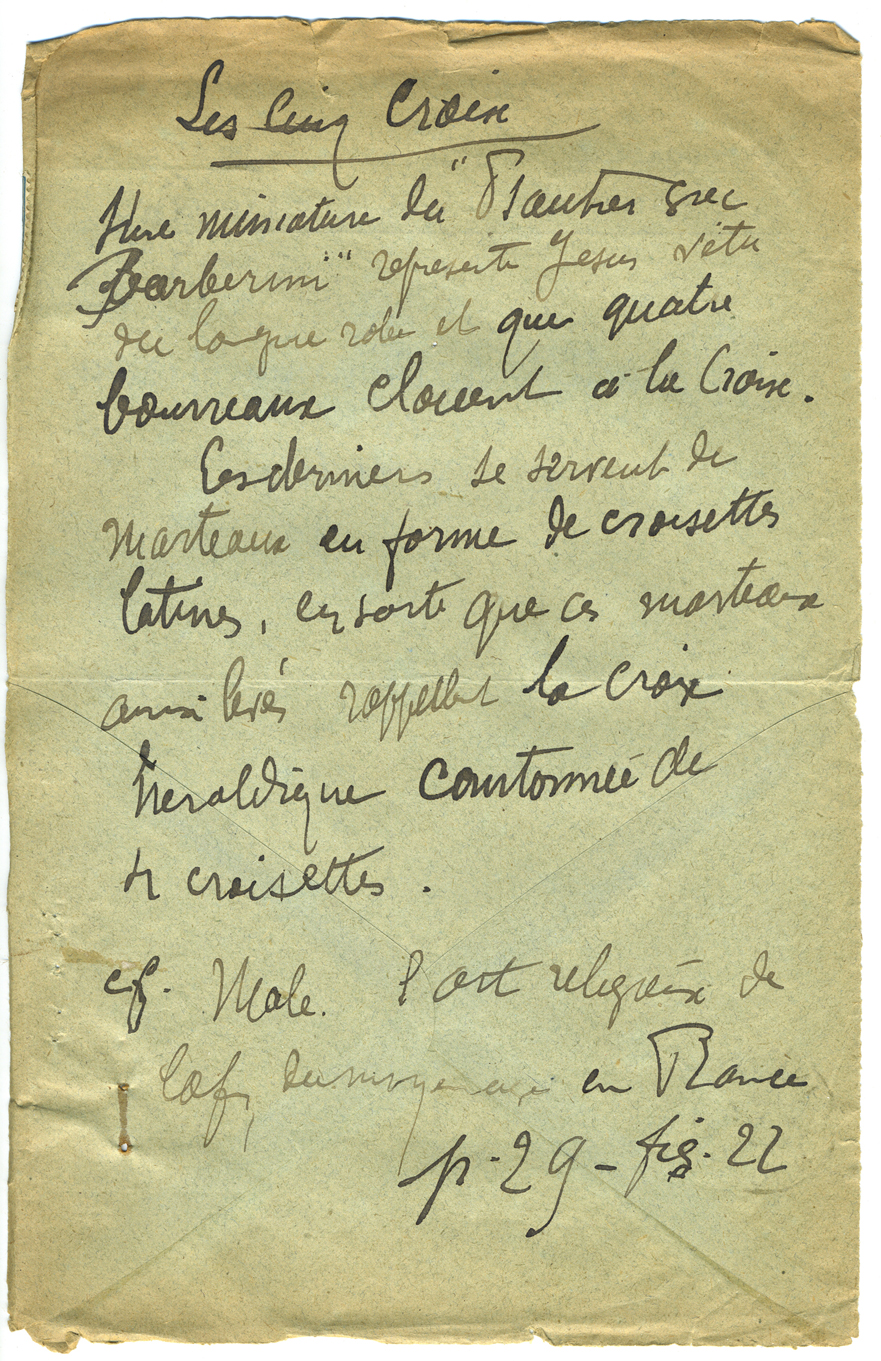 Les Cinq Croix
Une miniature du "Psautier grec
Barberini" représente Jesus vêtu
de la que robe et que quatre
bourreaux clouent à la Croix.
Ces derniers se servent de
marteaux en forme de croisettes
latines, en sorte que ces marteaux
ainsi levés rappellent la croix
heraldique cantonnée de
4 croisettes.
cf. Male. l'art religieux de
la fin du moyen age en France
p. 29 - fig. 22